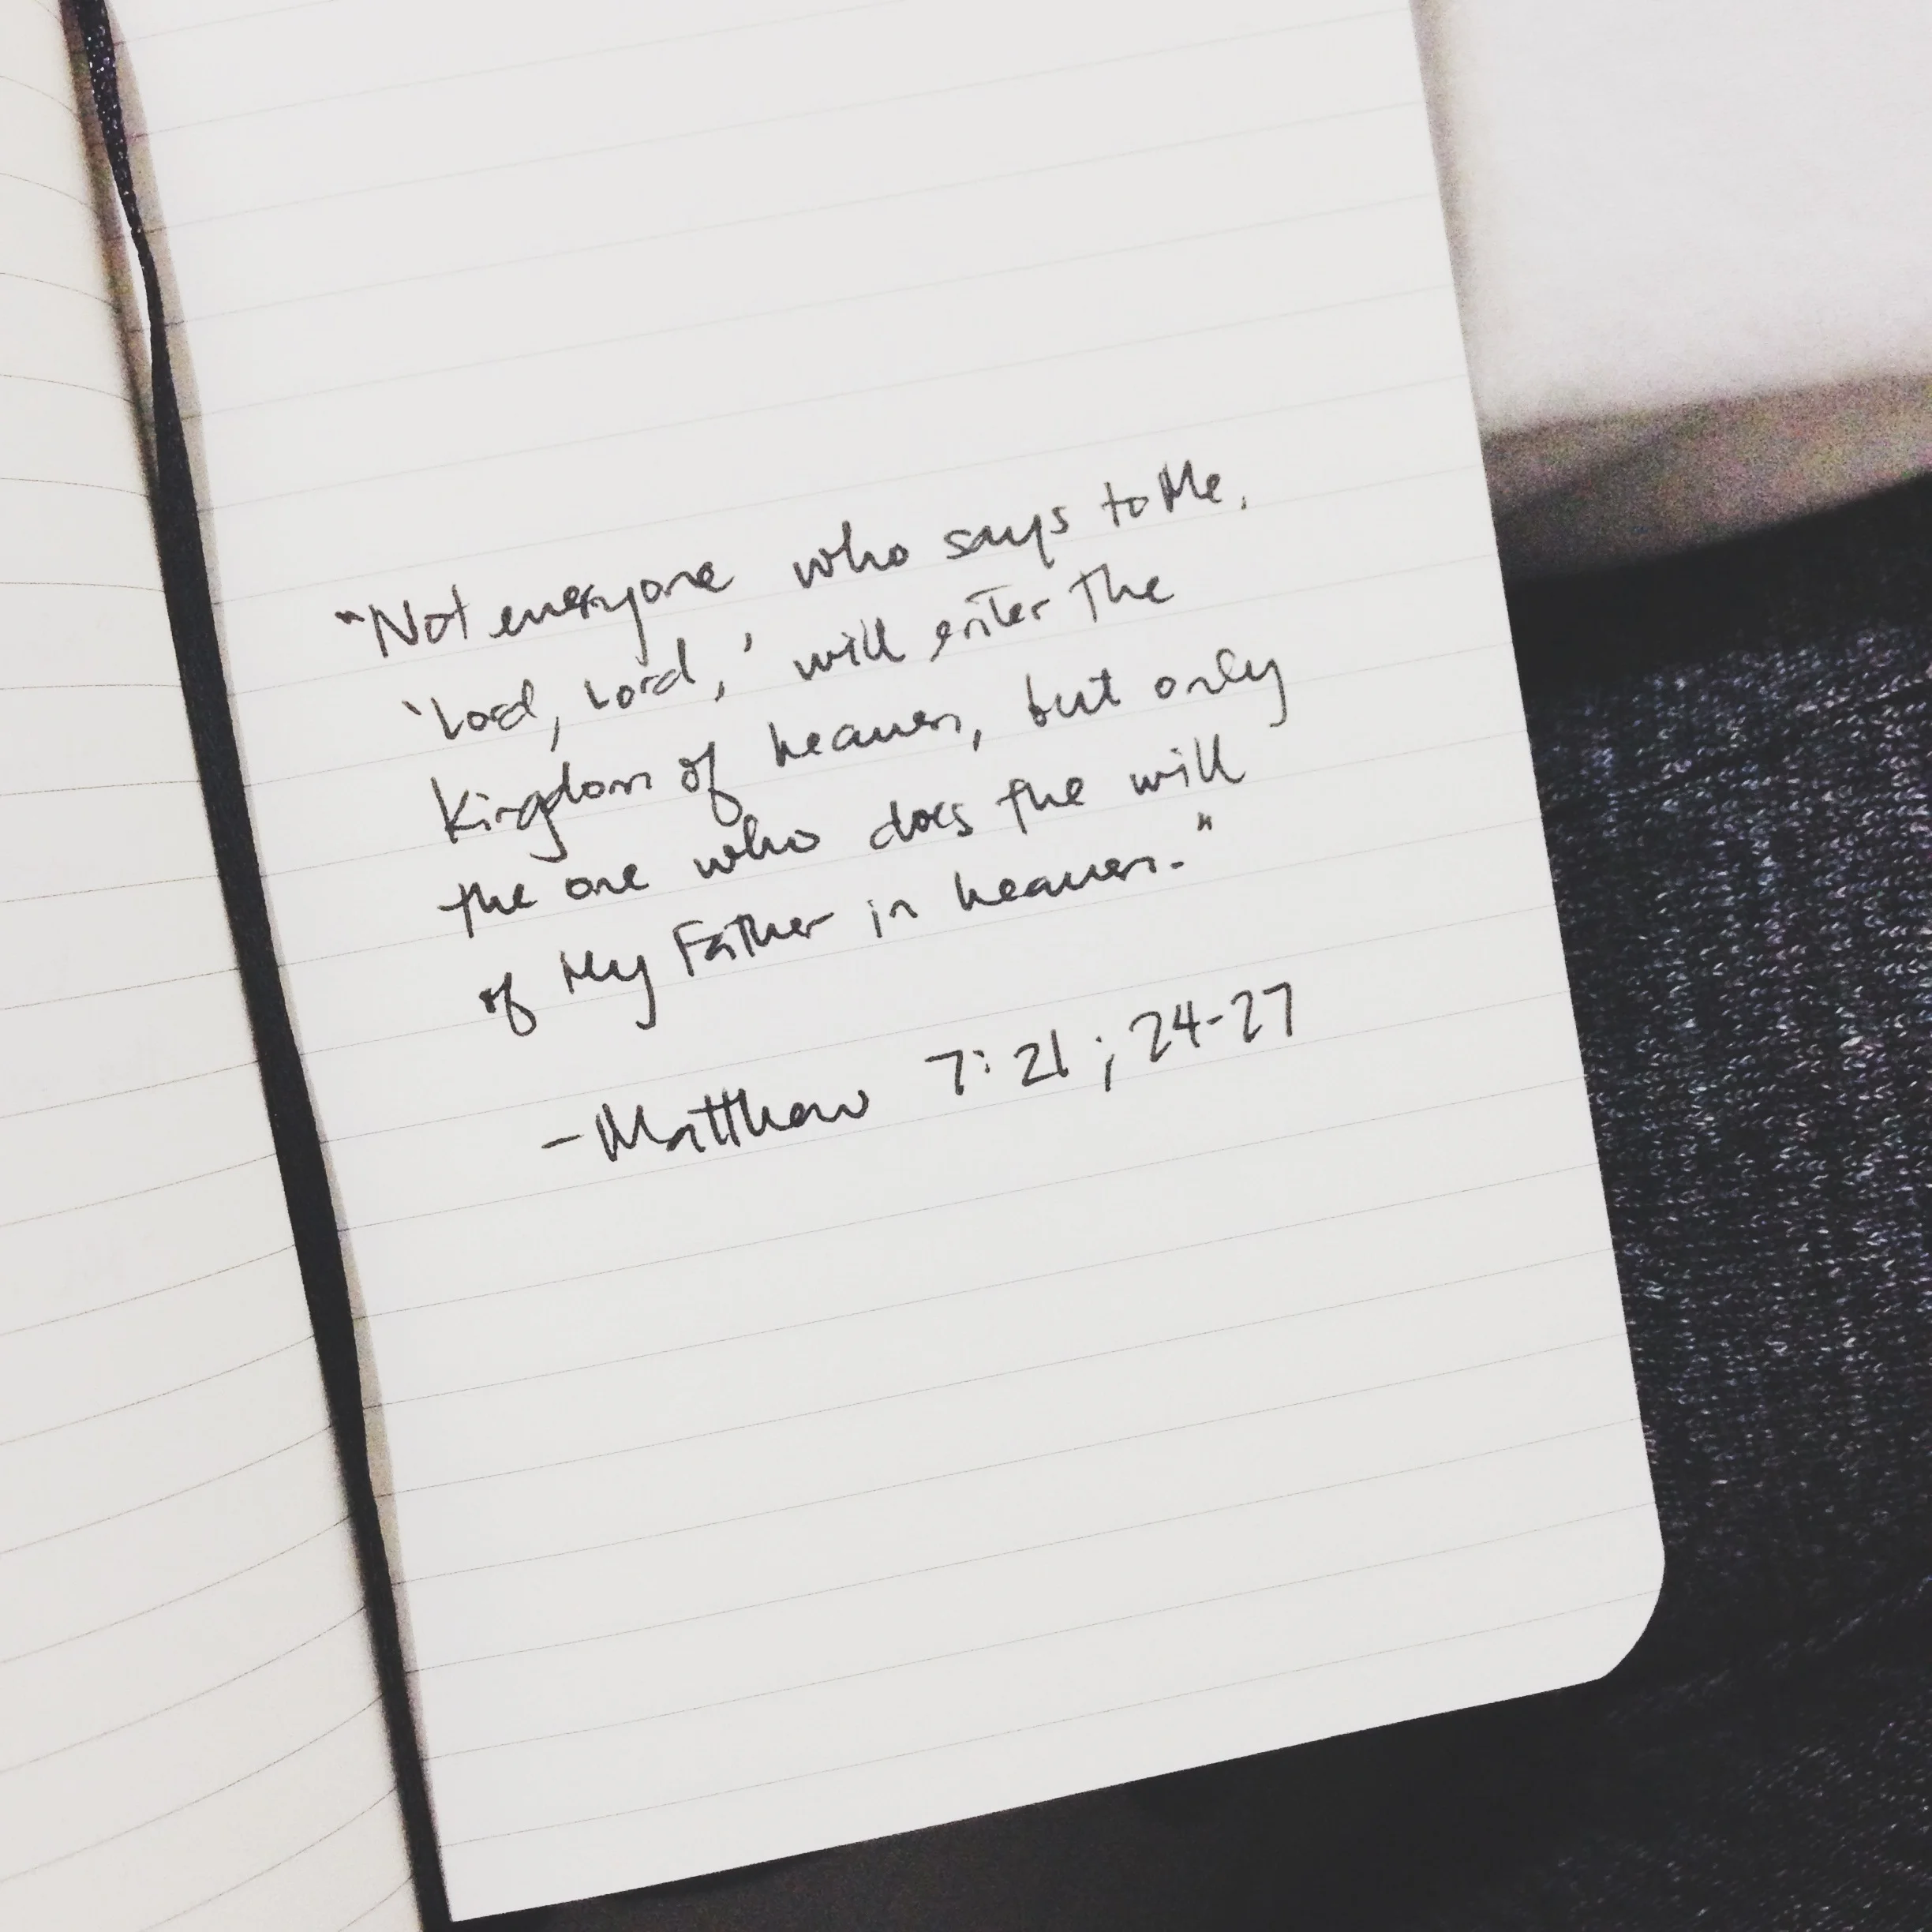 "Not everyone who says to Me,
'Lord, Lord,' will enter the
Kingdom of heaven, but only
the one who does the will
of My Father in heaven."
-Matthew 7:21; 24-27